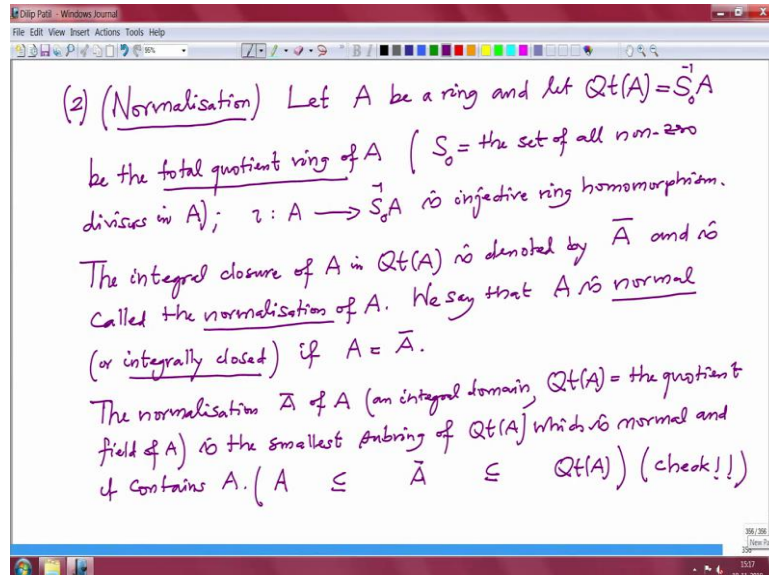 Dilip Patil - Windows Journal
File Edit View Insert Actions Tools Help
95%
(2) (Normalisation) Let A be a ring and let Qt(A) = S₀⁻¹A
be the total quotient ring of A ( S₀ = the set of all non-zero
divisors in A); ι : A ⟶ S₀⁻¹A is injective ring homomorphism.
The integral closure of A in Qt(A) is denoted by Ā and is
called the normalisation of A. We say that A is normal
(or integrally closed) if A = Ā.
The normalisation Ā of A (an integral domain, Qt(A) = the quotient
field of A) is the smallest subring of Qt(A) which is normal and
it contains A. ( A ⊆ Ā ⊆ Qt(A) ) (check!!)
356/356
New Pa
15:17